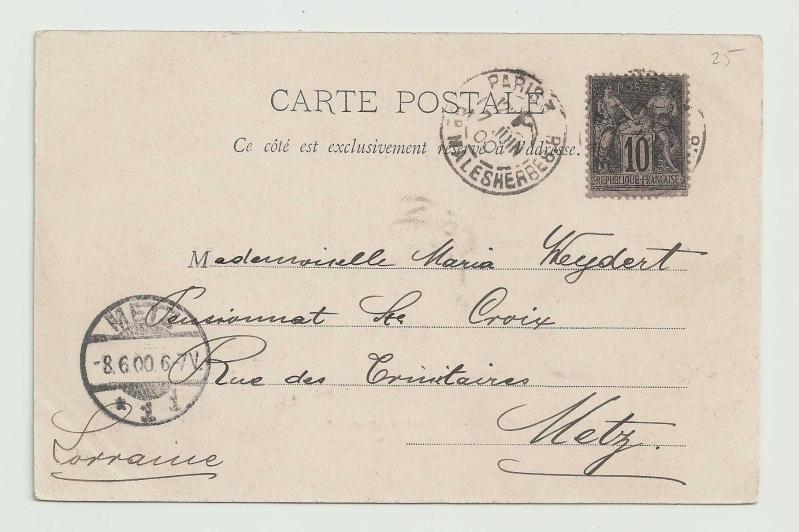 25
CARTE POSTALE
Ce côté est exclusivement réservé à l'adresse.
PARIS
7 JUIN
00
MALESHERBES
POSTE
10
REPUBLIQUE FRANÇAISE
Mademoiselle Maria Weydert
Pensionnat Ste Croix
Rue des Trinitaires
Metz.
Lorraine
METZ
-8.6.00.6-7V.
* 1 1